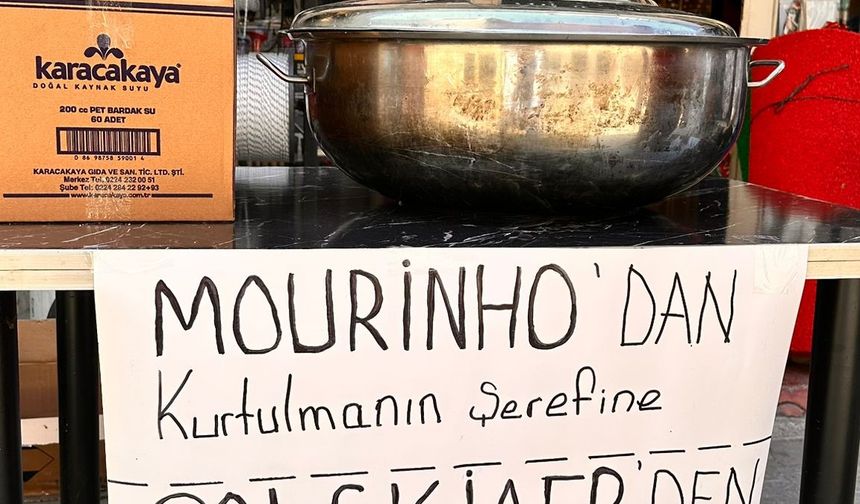 karacakaya
DOĞAL KAYNAK SUYU
200 cc PET BARDAK SU
60 ADET
0 86 98758 59001 4
KARACAKAYA GIDA VE SAN. TİC. LTD. ŞTİ.
Merkez Tel: 0224 232 00 51
Şube Tel: 0224 284 22 92+93
www.karacakaya.com.tr
MOURİNHO'DAN
Kurtulmanın Şerefine